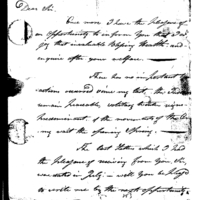 Dear Sir.
Once more I have the pleasure of
an opportunity to inform You that I en
joy that invaluable Blessing Health and
enquire after your welfare.
There has no important
occurred since my last, the
remain Peaceable
and the movements of the
my until the opening Spring.
The last Letter which I had
the pleasure of receiving from You, Sir,
was dated in July — will You be pleased
to write me by the next opportunity.